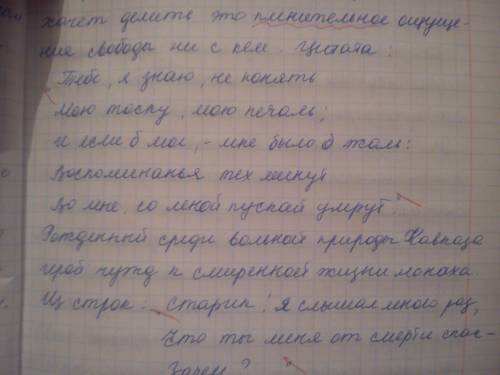 хочет делить это пленительное ощуще-
ние свободы ни с кем. Цитата:
Тебе, я знаю, не понять
Мою тоску, мою печаль;
и если б мог, - мне было б жаль:
Воспоминанья тех минут
Во мне, со мной пускай умрут.
Рожденный среди вольной природы Кавказа
герой чужд к смиренной жизни монаха.
Из строк: Старик! Я слышал много раз,
Что ты меня от смерти спас-
Зачем?